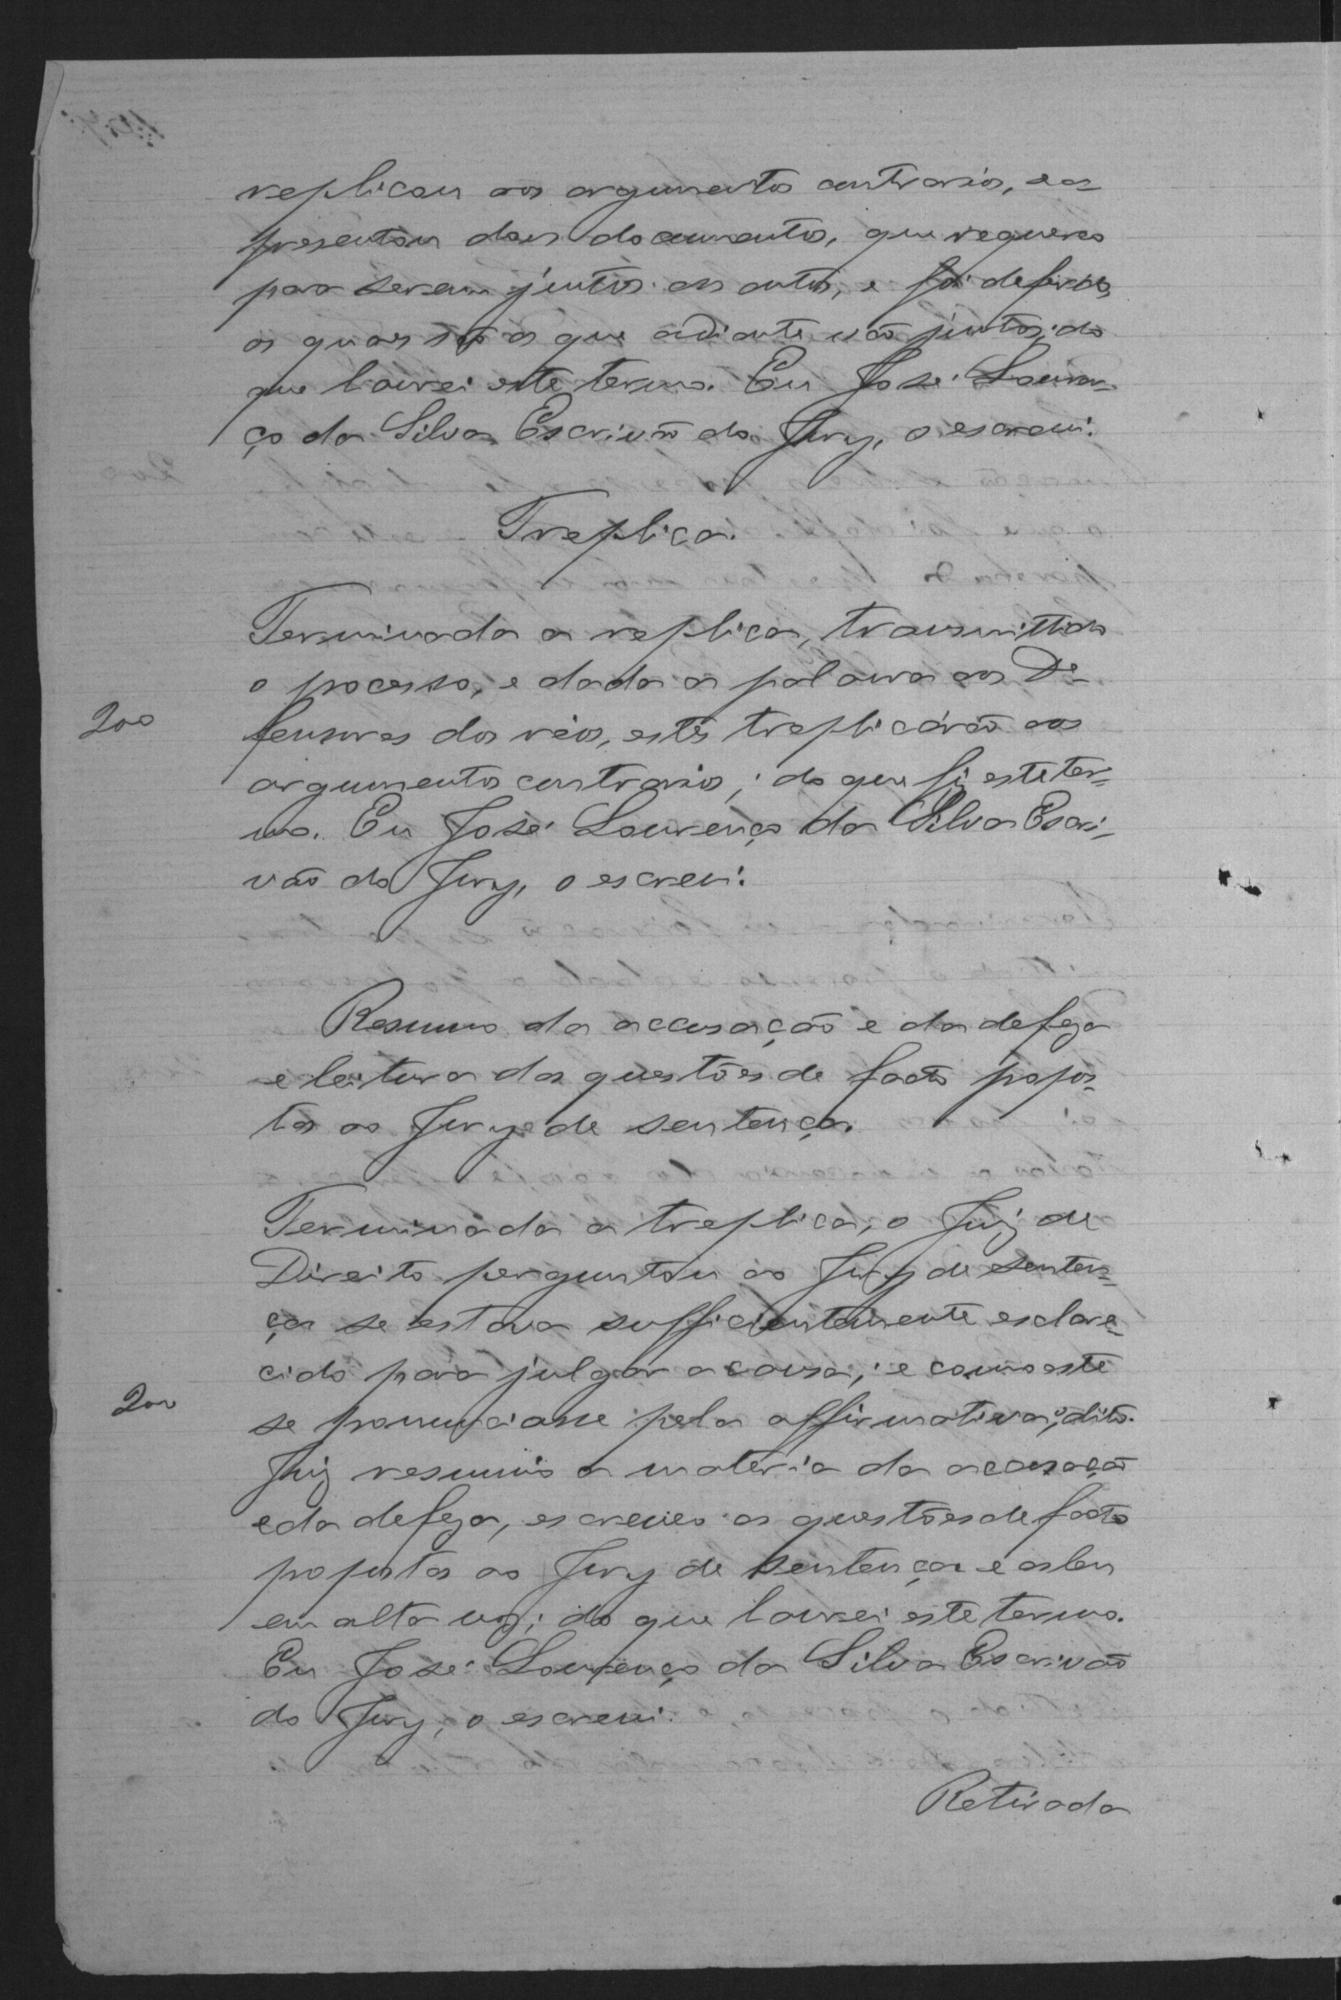 replicou aos argumentos contrarios, e a-
presentou dous documentos, que requereo
para serem juntos aos autos, e foi deferido,
os quaes são os que adiante vão juntos; do
que lavrei este termo. Eu José Louren-
ço da Silva Escrivão do Jury, o escrevi.
Treplica.
Terminada a replica, transmittido
o processo, e dada a palavra aos De-
200
fensores dos réos, estes treplicárão aos
argumentos contrarios; do que fiz este ter-
mo. Eu José Lourenço da Silva Escri-
vão do Jury, o escrevi.
Resumo da accusação e da defeza
e leitura das questões de facto propos-
tas ao Jury de sentença.
Terminada a treplica, o Juiz de
Direito perguntou ao Jury de senten-
ça se estava sufficientemente esclare-
cido para julgar a causa; e como este
200
se pronunciasse pela affirmativa, o dito
Juiz resumio a materia da accusação
e da defeza, escreveo as questões de facto
propostas ao Jury de sentença e as leu
em alta voz; do que lavrei este termo.
Eu José Lourenço da Silva Escrivão
do Jury, o escrevi.
Retirada